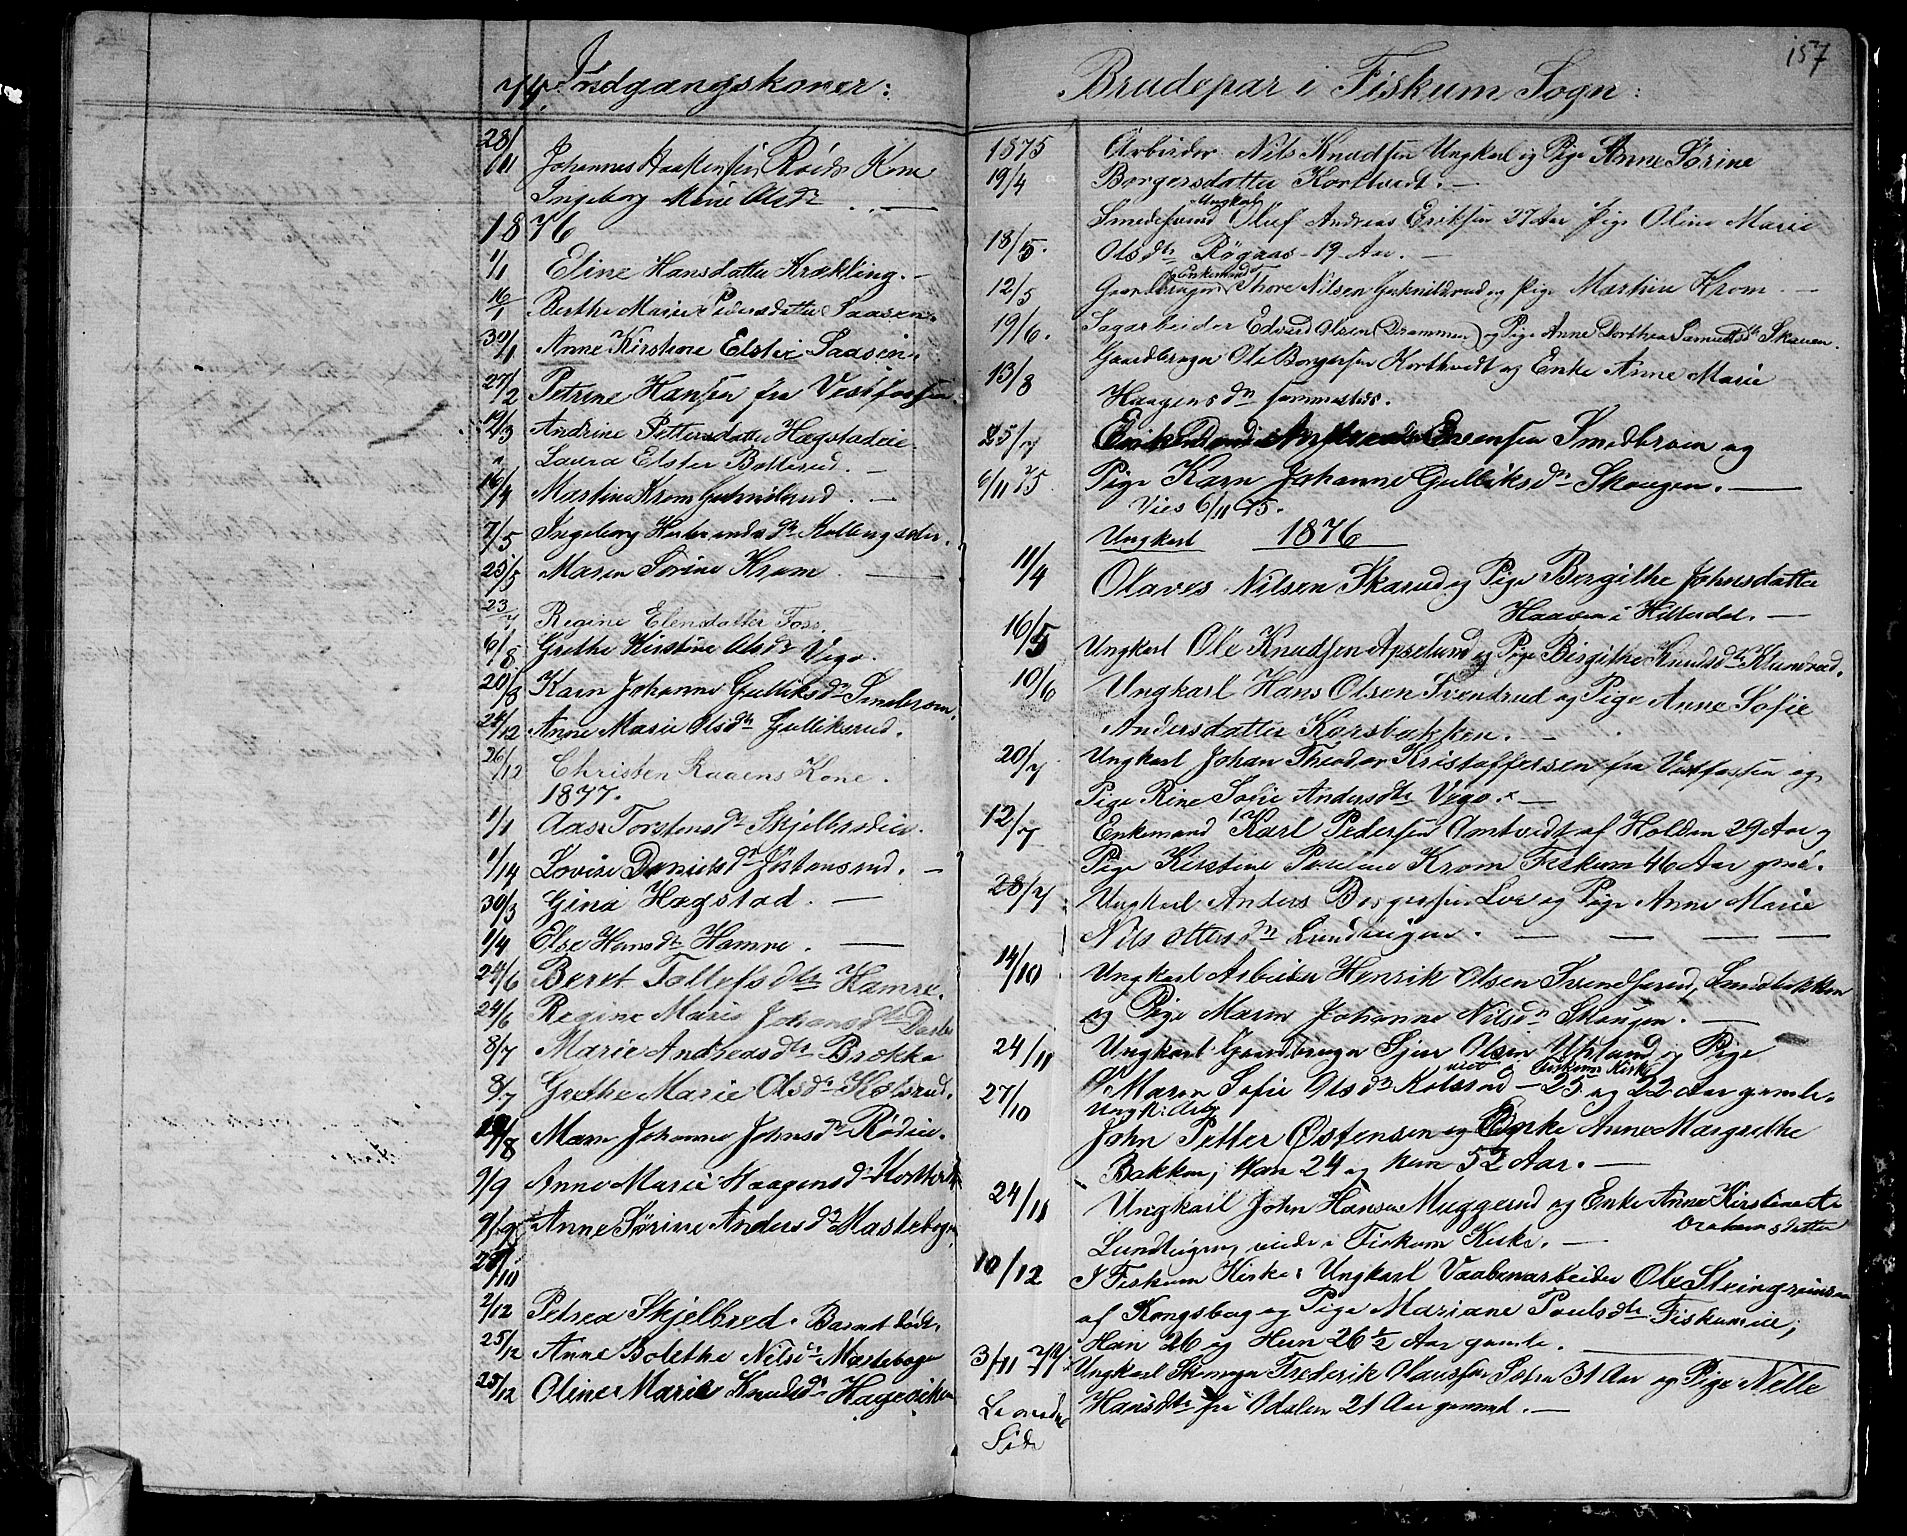 Indgangskoner:
28/11 Johannes Haakensen Røeds Kone
Ingeborg Marie Olsdtr
1876
1/1 Eline Hansdatter Krækling.
16/1 Berthe Marie Pedersdatter Saasen
30/1 Anne Kirstine Elster Saasen
27/2 Petrine Hansen fra Vestfossen
12/3 Andrine Pettersdatter Hægstadeie
" Laura Elster Botterud.
16/4 Martine Krom
7/5 Ingeborg Herbrandsdtr
25/5 Maren Sørine Krom
23/7 Regine Elensdatter Foss
6/8 Grethe Kirstine Olsdtr Vego.
20/8 Karn Johanne Gulliksdtr Smebroen.
24/12 Anne Marie Olsdtr Gulliksrud.
26/12 Christen Kaaens Kone.
1877.
1/1 Aase Torstensdtr Skjelbredeie.
1/14 Lovise Danielsdtr Østensrud.
30/3 Gina Hægstad.
1/4 Else Hansdtr Hamre.
24/6 Beret Tollefsdtr Hamre.
24/6 Regine Marie Johansdtr Darbo
8/7 Marie Andreasdtr Brække
8/7 Grethe Marie Olsdtr Kolsrud.
19/8 Maren Johanne Johnsdtr Rødeie.
9/9 Anne Marie Haagensdtr Korthvedt
9/9 Anne Sørine Andersdtr Mastebogen
28/10
2/12 Petrea Skjelbred. Barnet dødt.
25/12 Anne Bolethe Nilsdtr Mastebogen
25/12 Oline Marie Knudsdtr Hageviken
157
Brudepar i Fiskum Sogn:
1875 Arbeider Nils Knudsen Ungkarl og Pige Anne Sørine
19/4 Borgersdatter Korthvedt.
Ungkarl
18/5. Smedesvend Oluf Andreas Eriksen 27 Aar Pige Oline Marie
Olsdtr Røgnaas 19 Aar.
Enkemand
12/5 Gaardbruger Thore Nilsen og Pige Marthie Krom.
19/6. Sagarbeider Edvard Olsen (Drammen) og Pige Anne Dorthea Samuelsdtr Skauen.
13/8 Gaardbruger Ole Borgersen Korthvedt og Enke Anne Marie
Haagensdtr sammesteds.
25/7 Evensen Smedbroen og
6/11 75. Pige Karn Johanne Gulliksdtr Skougen.
Vies 6/11 75.
Ungkarl 1876
11/4 Olaves Nilsen Skarud og Pige Borgithe Johnsdatter
Haaven i Hitterdal.
16/5 Ungkarl Ole Knudsen Apselund og Pige Birgithe Knudsdtr
10/6 Ungkarl Hans Olsen Svendrud og Pige Anne Sofie
Andersdatter Korsbakken.
20/7 Ungkarl Johan Theodor Kristoffersen fra Vestfossen og
Pige Rine Sofie Andersdtr Vego.
12/7 Enkemand Karl Pedersen Omtvedt af Holden 29 Aar og
Pige Kirstine Krom Fiskum 46 Aar gml.
28/7 Ungkarl Anders Borgersen Loe og Pige Anne Marie
Nils Ottersdtr Lundteigen.
14/10 Ungkarl Arbeider Henrik Olsen Svendsrud, Smedbakken
og Pige Maren Johanne Nilsdtr Skougen.
24/11 Ungkarl Gaardbruger Sjur Olsen og Pige
viet i Fiskum Kirke
Maren Sofie Olsdtr Kolsrud 25 og 22 Aar gamle.
27/10 Ungk: Arb
John Petter Østensen og Enke Anne Margrethe
Bakken, Han 24 og hun 52 Aar.
24/11 Ungkarl John Hansen Muggerud og Enke Anne Kirstine A
brahamsdatter
Lundteigen, viede i Fiskum Kirke.
10/12 I Fiskum Kirke: Ungkarl Vaabenarbeider Ole Steingrimsen
af Kongsberg og Pige Mariane Poulsdtr Fiskumeie,
Han 26 og Hun 26 1/2 Aar gamle.
3/11 77. Ungkarl Frederik Olaussen 31 Aar og Pige Nelle
Hansdtr fra Odalen 21 Aar gammel.
Side